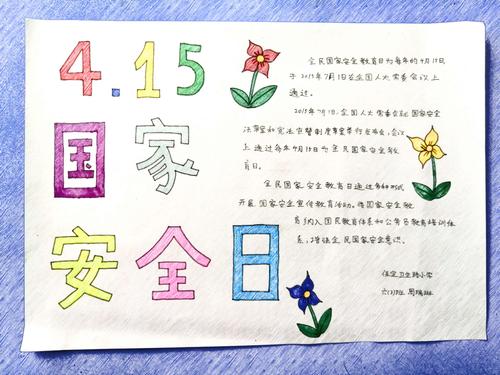 4.15
国家
安全日
全民国家安全教育日为每年的4月15日,
于2015年7月1日在全国人大常委会议上
通过。
2015年7月1日,全国人大常委会就国家安全
法草案和宪法宣誓制度草案举行发布会,会议
上通过每年4月15日为全民国家安全教
育日。
全民国家安全教育日通过多种形式
开展国家安全宣传教育活动。将国家安全教
育纳入国民教育体系和公务员教育培训体
系,增强全民国家安全意识。
保定卫生路小学
六(2)班 周